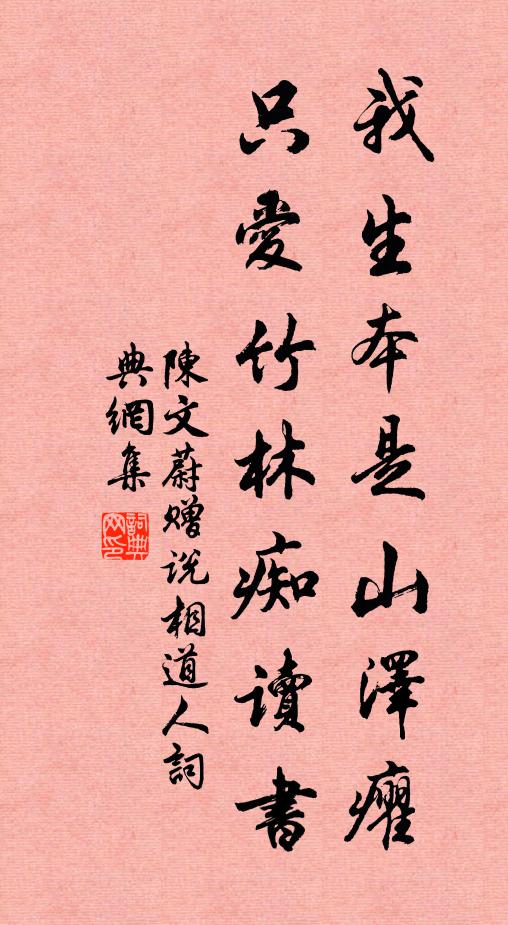 我生本是山澤癯
只愛竹林痴讀書
陳文蔚贈説相道人詞
典網集
詞典網印